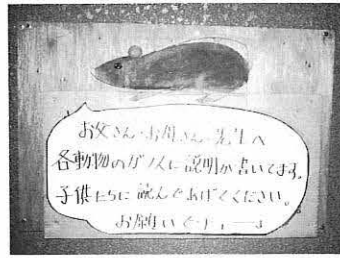 お父さん・お母さん・先生へ
各動物のガラスに説明が書いてます。
子供たちに読んであげてください。
お願いします